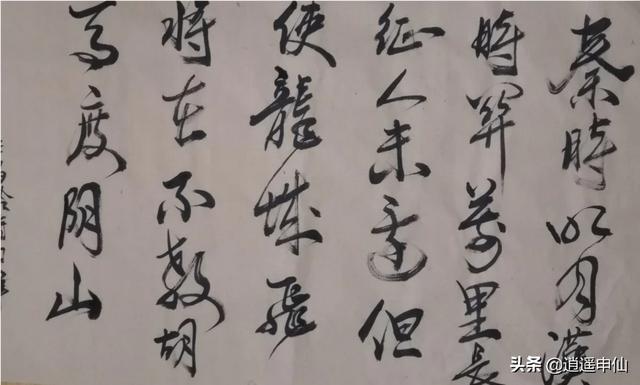 秦時明月漢
時關萬里長
征人未還但
使龍城飛
將在不教胡
馬度阴山
头条 @逍遥申仙